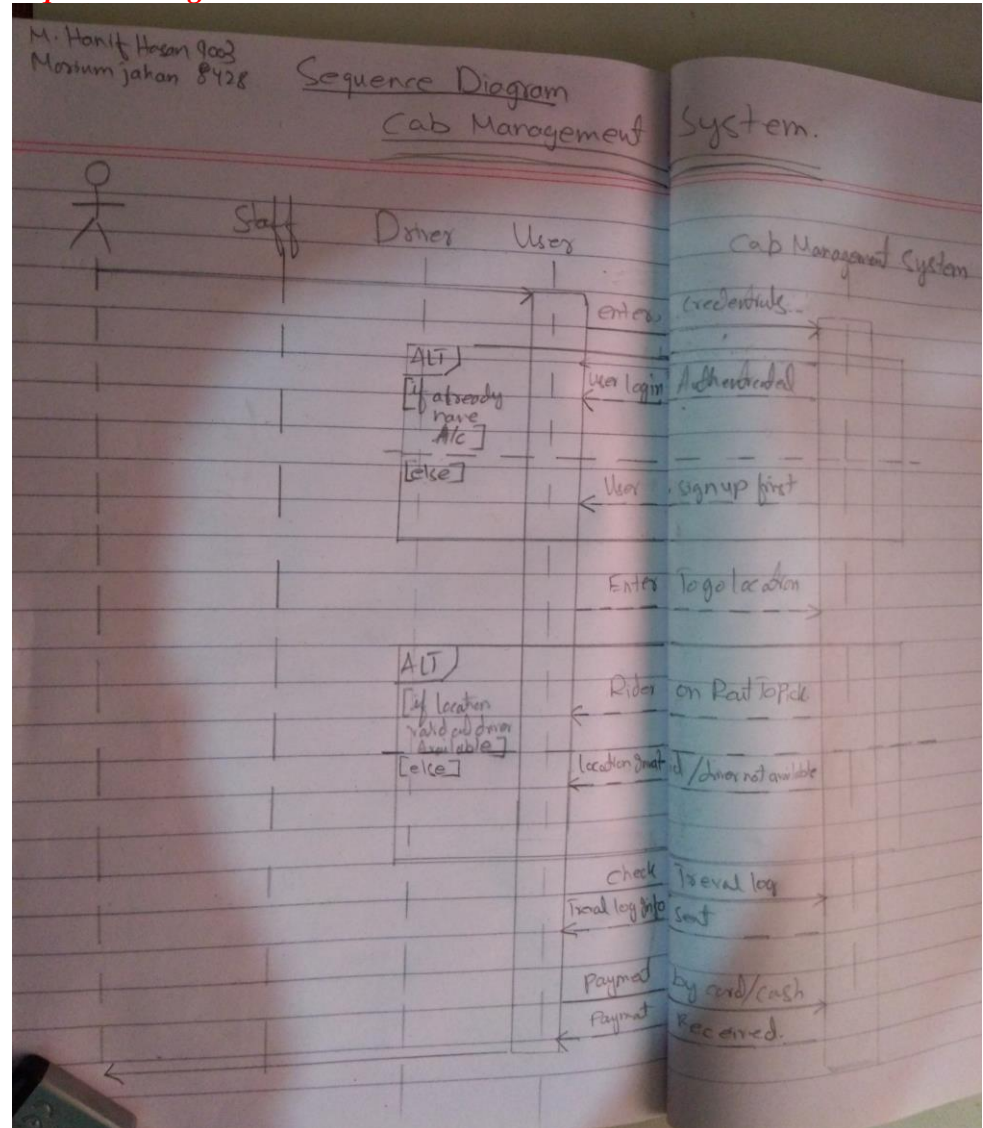 M. Hanif Hasan 9003
Morium jahan 8428
Sequence Diagram
Cab Management System.
Staff Driver User Cab Management System
enter credentials..
ALT
User login Authenticated
[if already
have
A/c]
[else]
User signup first
Enter To go location
ALT
Rider on
[if location
valid and driver
Available]
[else]
location / driver not available
check Treval log
Treval log info sent
Payment by card/cash
Payment Received.